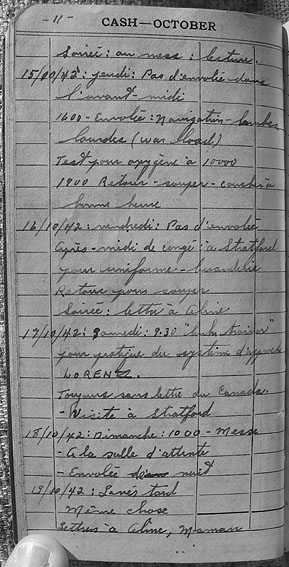 -11-
CASH—OCTOBER
Soirée: au mess: lecture.
15/10/42: jeudi: Pas d'envolée dans
l'avant-midi
1600 - Envolée: Navigation - bombes
lourdes (war load)
Test pour oxygène à 10000
1900 Retour - souper - couché à
bonne heure
16/10/42: vendredi: Pas d'envolée
Après-midi de congé: à Stratford
pour uniforme - buanderie
Retour pour souper
Soirée: lettre à Aline
17/10/42: Samedi: 9.30 "link trainer"
pour pratique du system d'approach
LORENTZ.
Toujours sans lettre du Canada
- Visite à Stratford
18/10/42: Dimanche: 1000 - Messe
- A la salle d'attente
- Envolée de nuit
19/10/42: Levés tard
Même chose
Lettres à Aline, Maman